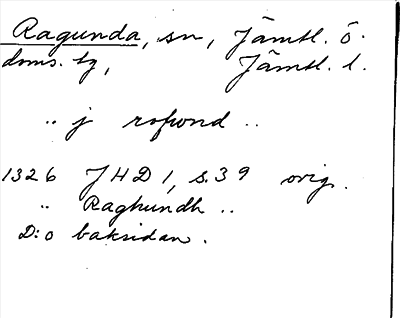 Ragunda, sn, Jämtl. ö.
doms. tg, Jämtl. l.
.. j rafwnd ..
1326 JHD 1, s. 39 orig.
.. Raghundh ..
D:o baksidan.